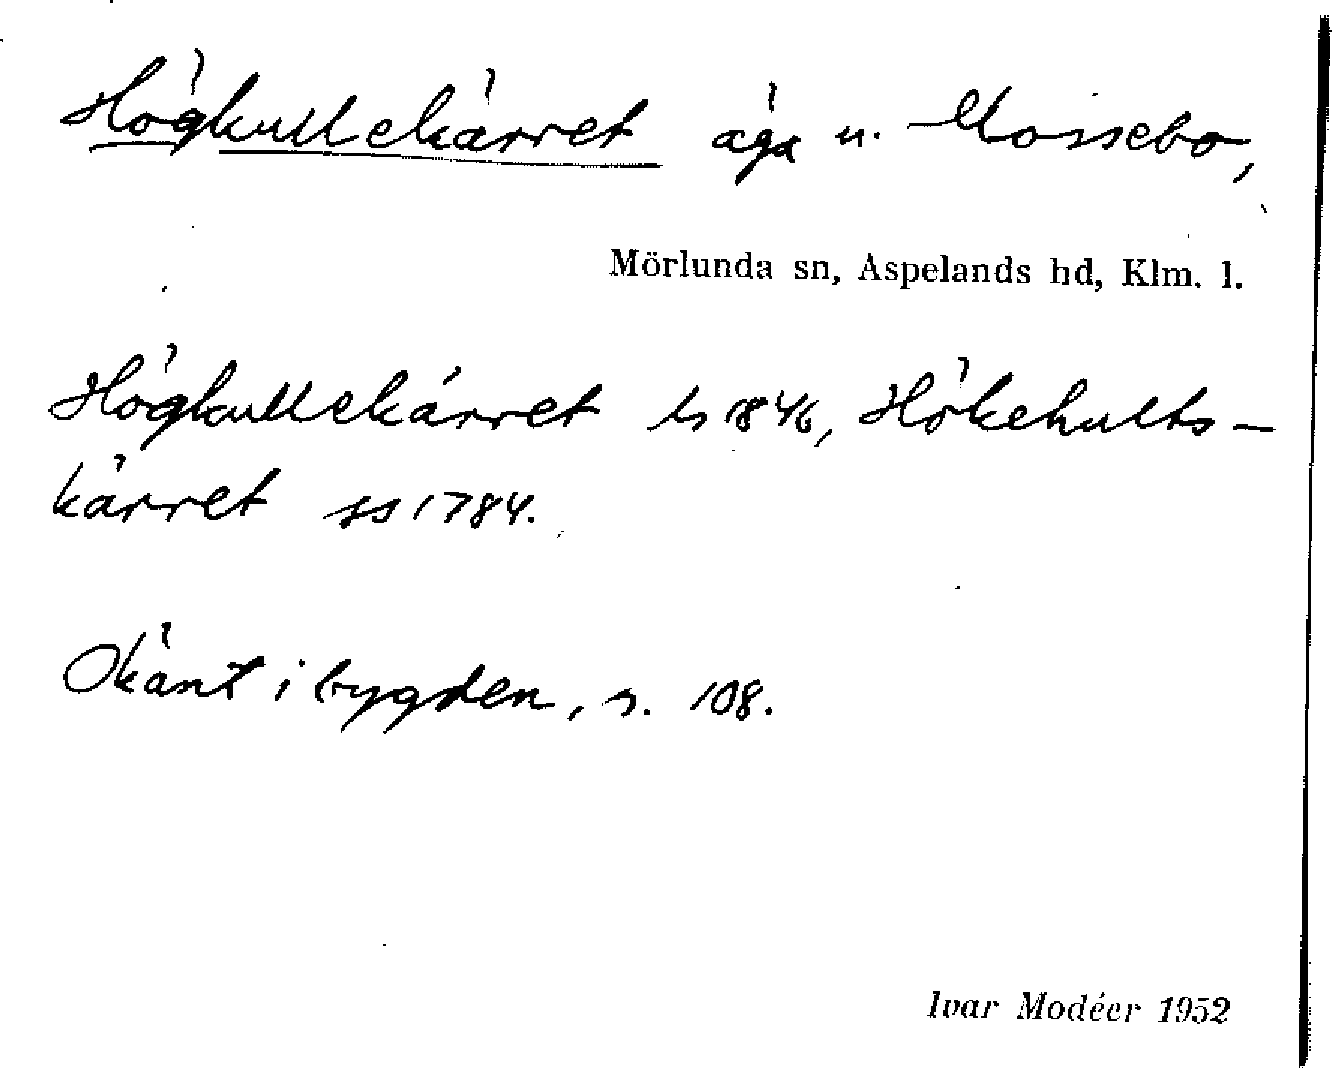 Högkullekärret äga u. Mossebo,
Mörlunda sn, Aspelands hd, Klm. l.
Högkullekärret ls 1846, Hökehults-
kärret ss 1784.
Okänt i bygden, s. 108.
Ivar Modéer 1952